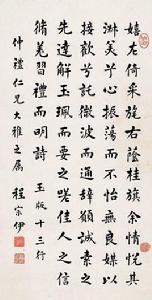 嬉左倚采旄右蔭桂旗余情悅其
淑美兮心振蕩而不怡無良媒以
接歡兮託微波而通辭願誠素之
先達解玉珮而要之嗟佳人之信
脩羌習禮而明詩 玉版十三行
仲禮仁兄大雅之屬 程宗伊